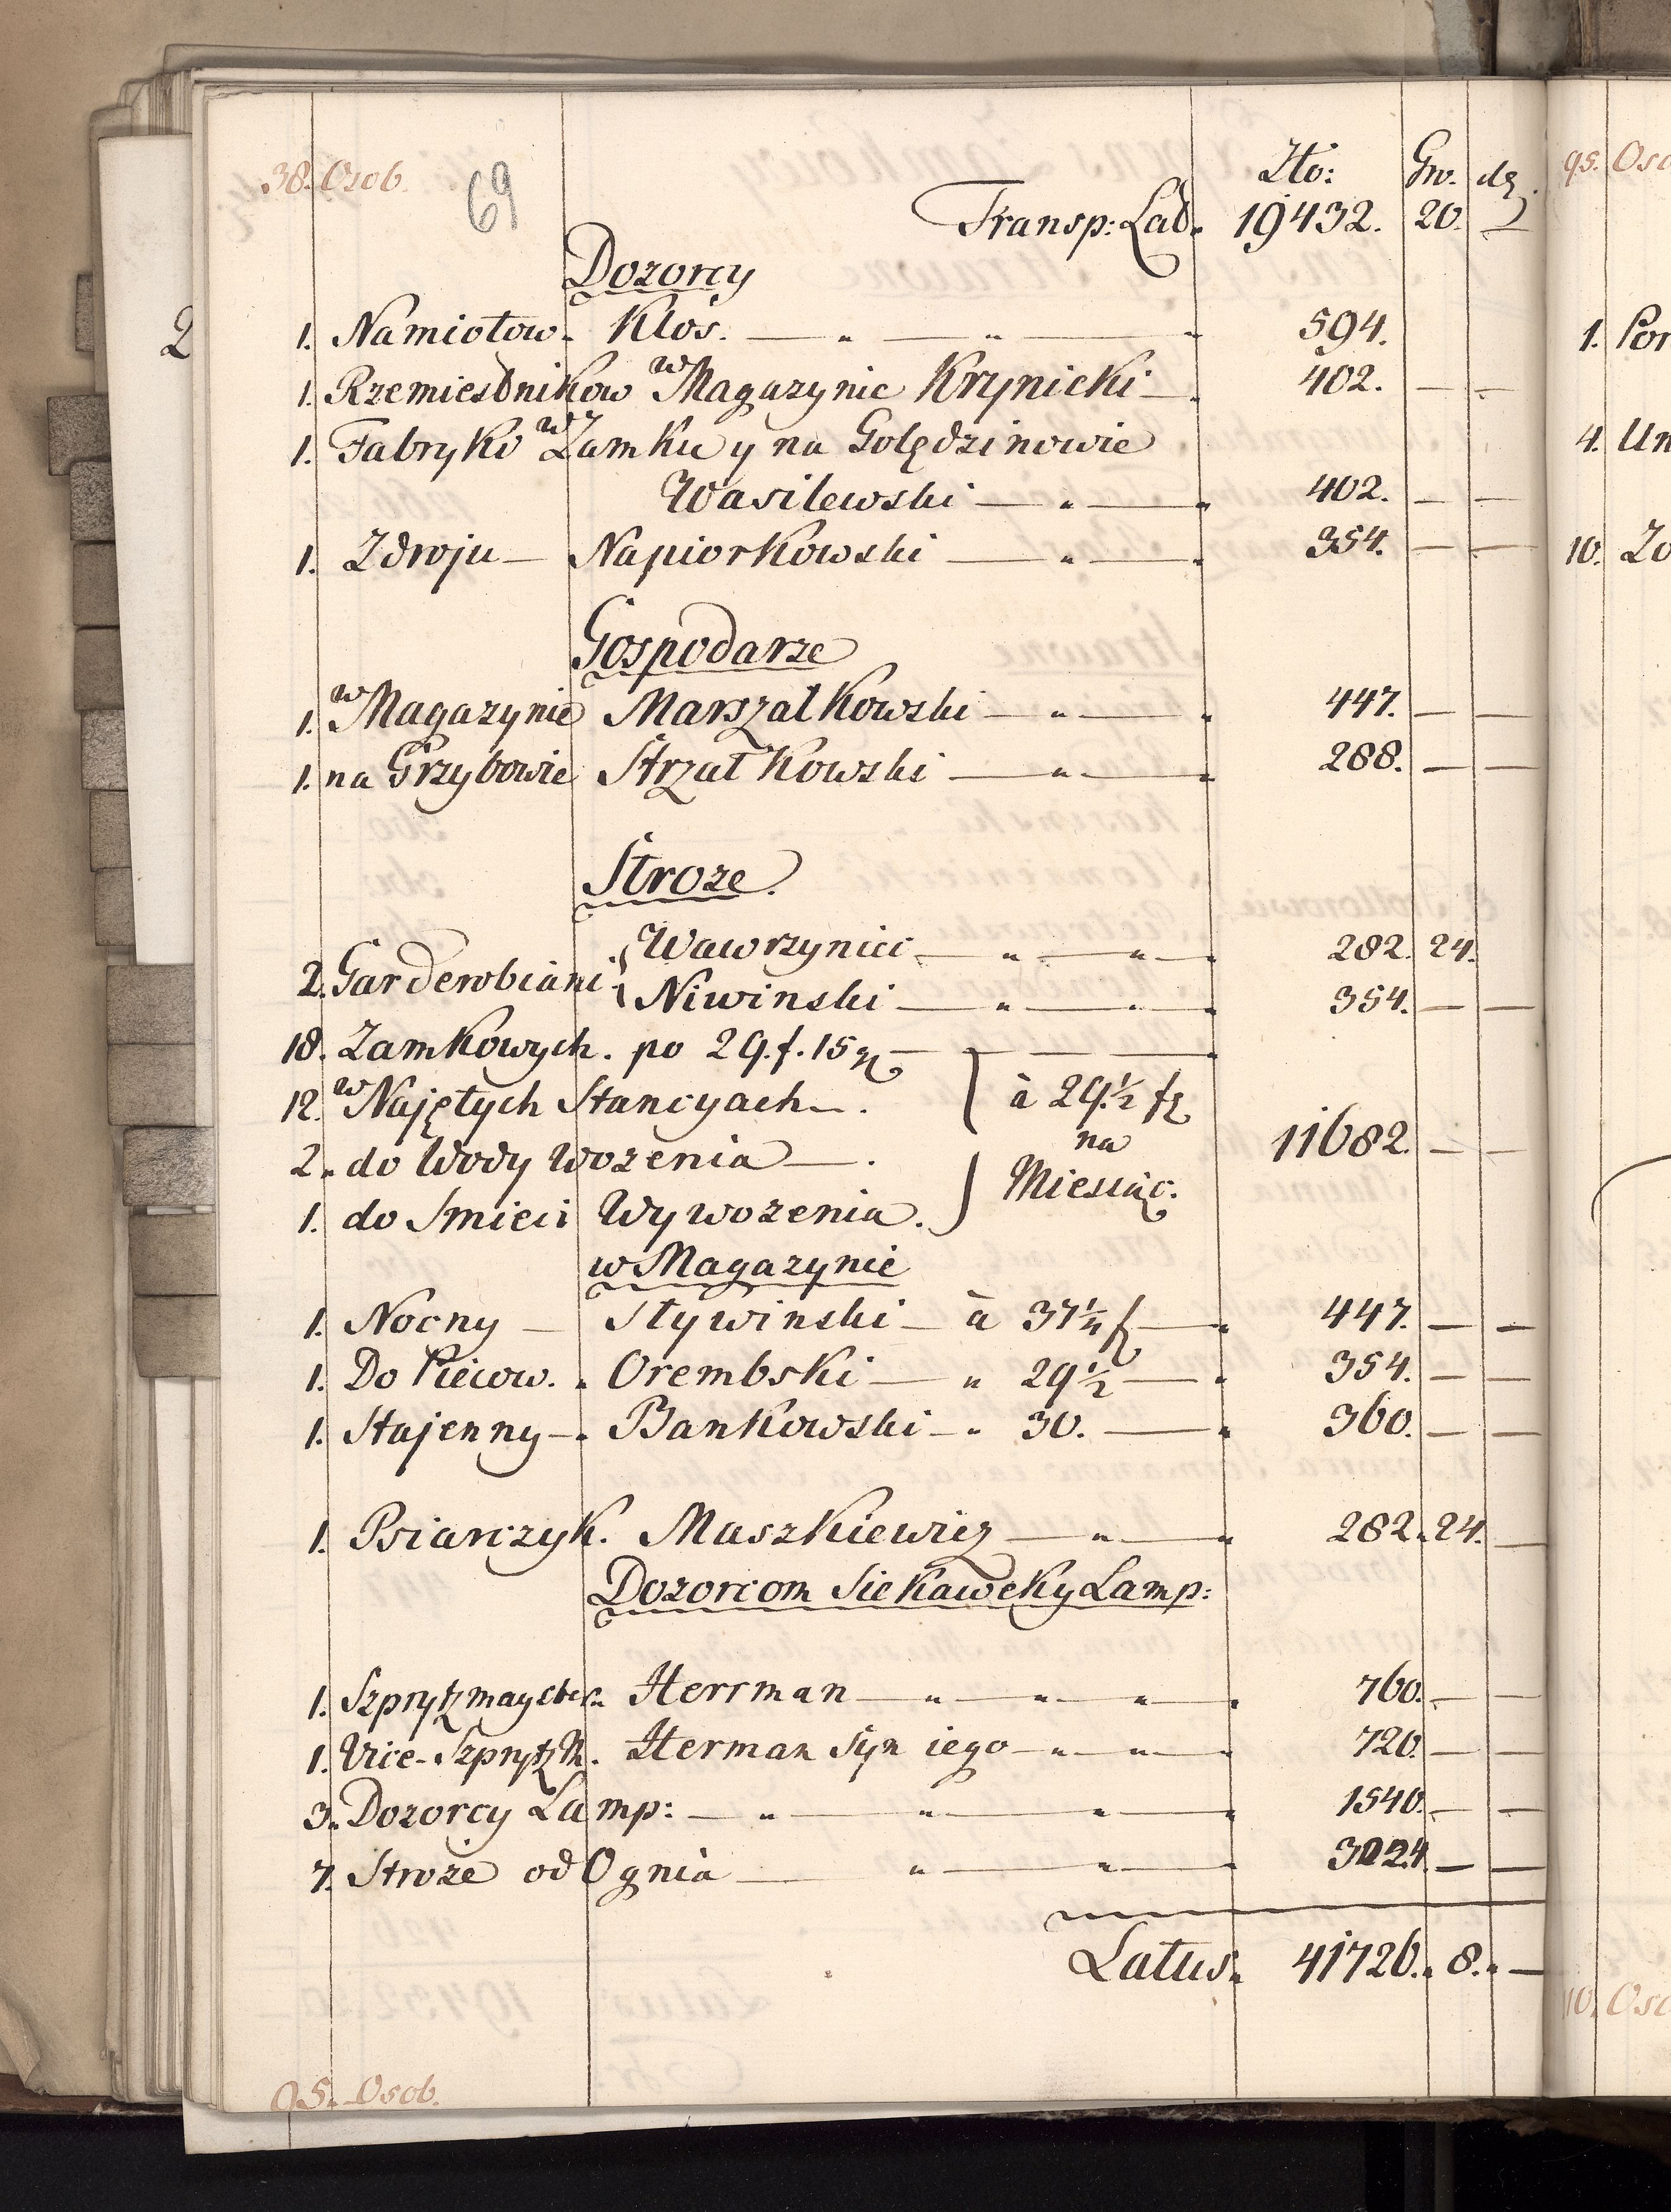 38. Osob. 69
Zło: Gr. dz.
Transp: Lad. 19432. 20. —
Dozorcy
1. Namiotow. Kłos. — „ — „ — 594.
1. Rzemieslnikow w Magazynie Krynicki — 402. — —
1. Fabryk w Zamku y na Golędzinowie
Wasilewski — „ — 402. — —
1. Zdroju — Napiorkowski — „ — 354. — —
Gospodarze
1. w Magazynie Marszałkowski — „ — 447. — —
1. na Grzybowie Strzałkowski — „ — 288. — —
Stroze.
2. Garderobiani { Wawrzyniec — „ — „ — 282. 24.
Niwinski — „ — „ — 354. — —
18. Zamkowych. po 29. f. 15 gr — — —
12. w Najętych Stancyach —. à 29. ½ fz
2. do Wody Wozenia —. na 11682. — —
1. do Smieci Wywozenia. Miesiąc.
w Magazynie
1. Nocny — Stywinski — à 37 ¼ f — 447. — —
1. Do Piecow. „ Orembski — „ 29 ½ — 354. — —
1. Stajenny — „ Bankowski — „ 30. — 360. — —
1. Psiarczyk. Maszkiewicz — „ — 282. 24. —
Dozorcom Sikawek y Lamp:
1. Szprytzmayster. Herrman — „ — „ — „ — 760. — —
1. Vice-Szprytz M. Herman Syn iego — „ — „ — 720. — —
3. Dozorcy Lamp: — „ — „ — „ — 1540. — —
7. Stroze od Ognia — „ — „ — 3024. — —
Latus. 41726. 8. —
95. Osob.
95.
1.
4.
10.
10.
2